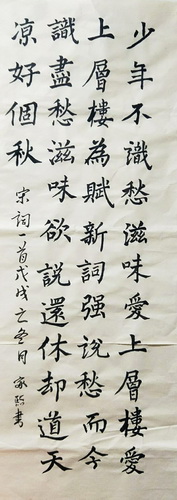 少年不識愁滋味愛上層樓愛
上層樓為賦新詞强說愁而今
識盡愁滋味欲説還休却道天
凉好個秋
宋詞一首戊戌之冬月家熙書